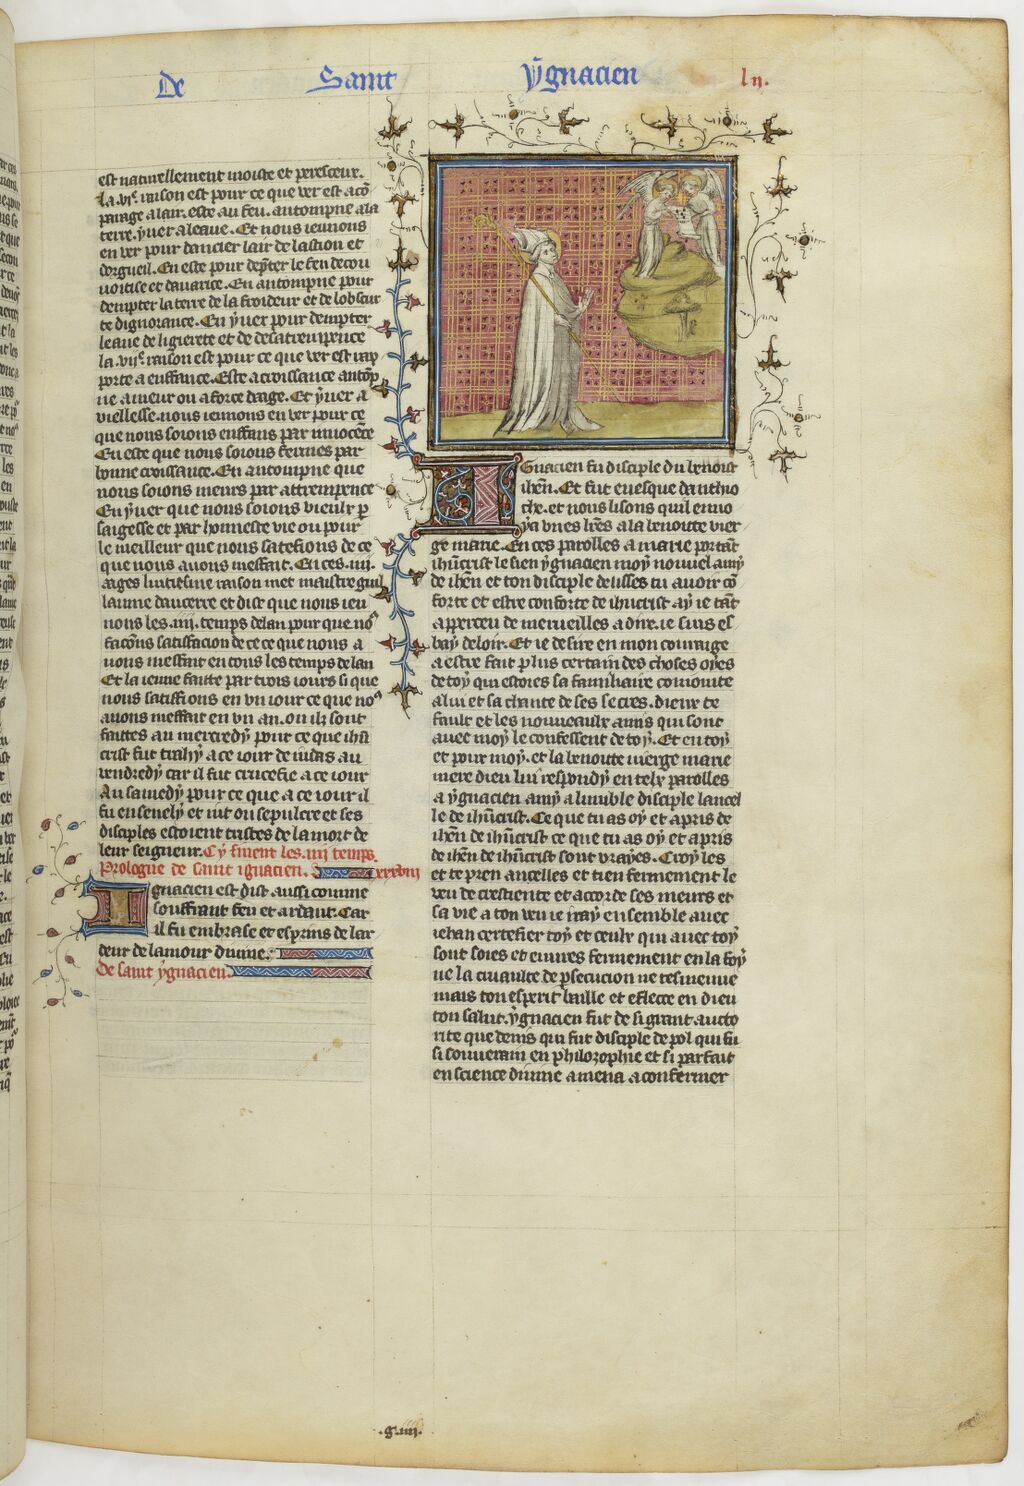 De Saint ygnacien lii.
est naturellement moiste et peresceux.
La vie. raison est pour ce que ver est acom
parage a lair. este au feu. autompne a la
terre. yuer a leaue. Et nous ieunons
en ver pour dancier lair de lacion et
dorgueil. En este pour depter le feu de cou
uoitise et dauarice. En autompne pour
dempter la terre de la froideur et de lobscur
te dignorance. En yuer pour dempter
leaue de ligierete et de desatrempence
La viie. raison est pour ce que ver est rap
porte a enffance. Este a croissance automp
ne a meur ou a force daage. Et yuer a
viellesse. nous ieunons en ver pour ce
que nous soions enffans par innocence
En este que nous soions fermes par
bonne croissance. En autompne que
nous soions meurs par attrempence
En yuer que nous soions vieulx p
saigesse et par honneste vie ou pour
le meilleur que nous satefions de ce
que nous auons meffait. En ces .iiii.
aages luitiesme raison met maistre guil
laume daucerre et dist que nous ieu
nons les .iiii. temps de lan pour que no9
facons satiffacion de ce ce que nous a
uons meffait en tous les temps de lan
Et la ieune faitte par trois iours si que
nous satiffions en vn iour ce que no9
auons meffait en vn an. ou ilz sont
faittes au mercredy pour ce que ihu
crist fut trahy a ce iour de iudas au
vendredy car il fut crucefie a ce iour
Au samedy pour ce que a ce iour il
fu enseuely et iut ou sepulcre et ses
disciples estoient tristes de la mort de
leur seigneur. Cy finent les .iiii temps.
Prologue de saint ignacien. xxxviii
Ignacien est dist aussi comme
souffrant feu et ardant. Car
il fu embrase et esprins de lar
deur de lamour diuine.
De saint ygnacien.
Ignacien fu disciple du benoist
ihen. Et fut euesque danthio
che. et nous lisons quil enuo
ya vnes lres a la benoitte vier
ge marie. En ces parolles a marie portat
ihucrist le sien ygnacien moy nouuel amy
de ihen et ton disciple deusses tu auoir co
forte et estre conforte de ihucrist ay ie tat
apperceu de merueilles a dire. ie suis es
bay de loir. Et ie desire en mon couraige
a estre fait plus certain des choses oyes
de toy qui estoies sa familiaire coniointe
a lui et sachante de ses secres. dieux te
sault et les nouueaulx amis qui sont
auec moy le confessent de toy. Et en toy
et pour moy. et la benoite vierge marie
mere dieu lui respondy en telx parolles
a ygnacien amy a humble disciple lancel
le de ihucrist. Ce que tu as oy et apris de
ihen de ihucrist ce que tu as oy et apris
de ihen de ihucrist sont vrayes. Croy les
et te pren ancelles et tien fermement le
veu de crestiente et accorde ses meurs et
sa vie a ton veu ie iray ensemble auec
iehan certefier toy et ceulx qui auec toy
sont soies et euures fermement en la foy
ne la cruaulte de psecucion ne tesmeuue
mais ton esperit baille et esleece en dieu
ton salut. ygnacien fut de si grant aucto
rite que denis qui fut disciple de pol qui fu
si souuerain en philozophie et si parfait
en science diuine amena a confermer
.g.iiii.